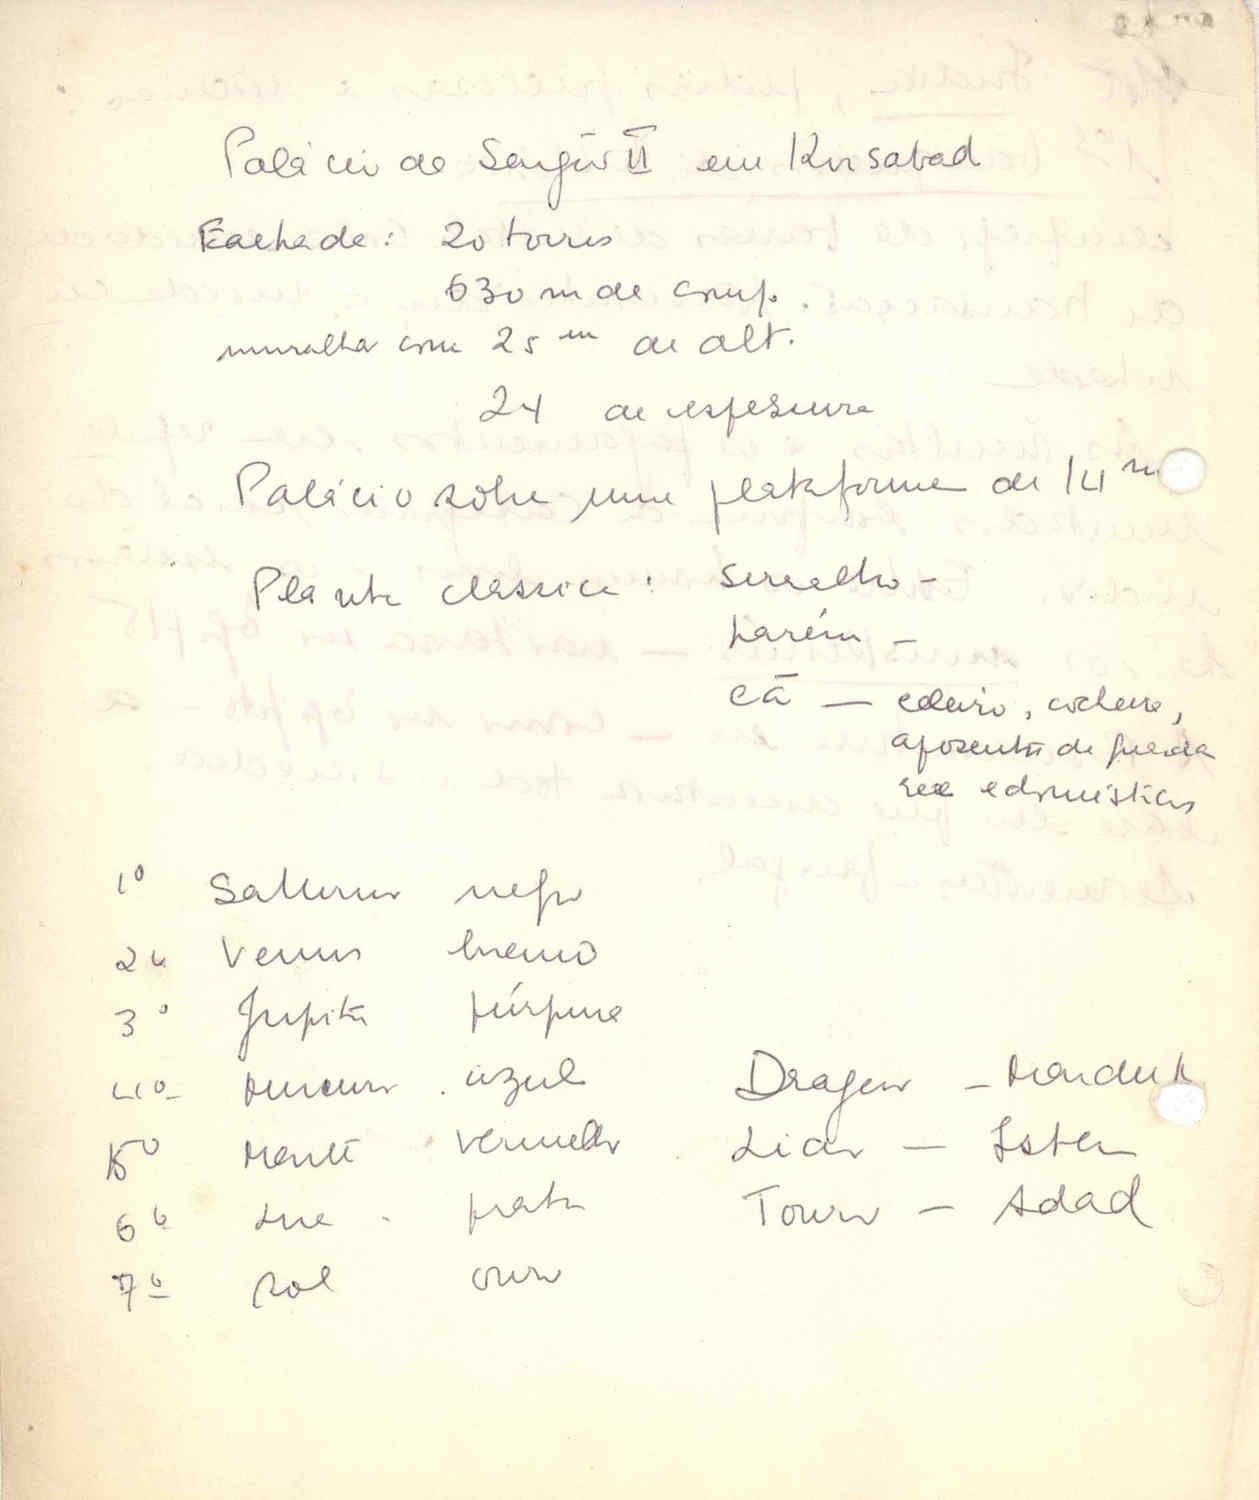 Palácio de Sargão II em Korsabad
Fachada: 20 torres
630 m de comp.
muralha com 25 m de alt.
24 de espessura
Palácio sobre uma plataforma de 14 m
Planta classica: serralho -
harém -
cã — celeiro, cocheira,
aposentos de guarda
economicas
1º Saturno negro
2º Venus branco
3º Jupiter púrpura
4º Mercurio . azul
Dragão - Marduk
5º Marte vermelho
Lião - Istar
6º Lua . prata
Touro - Adad
7º Sol ouro